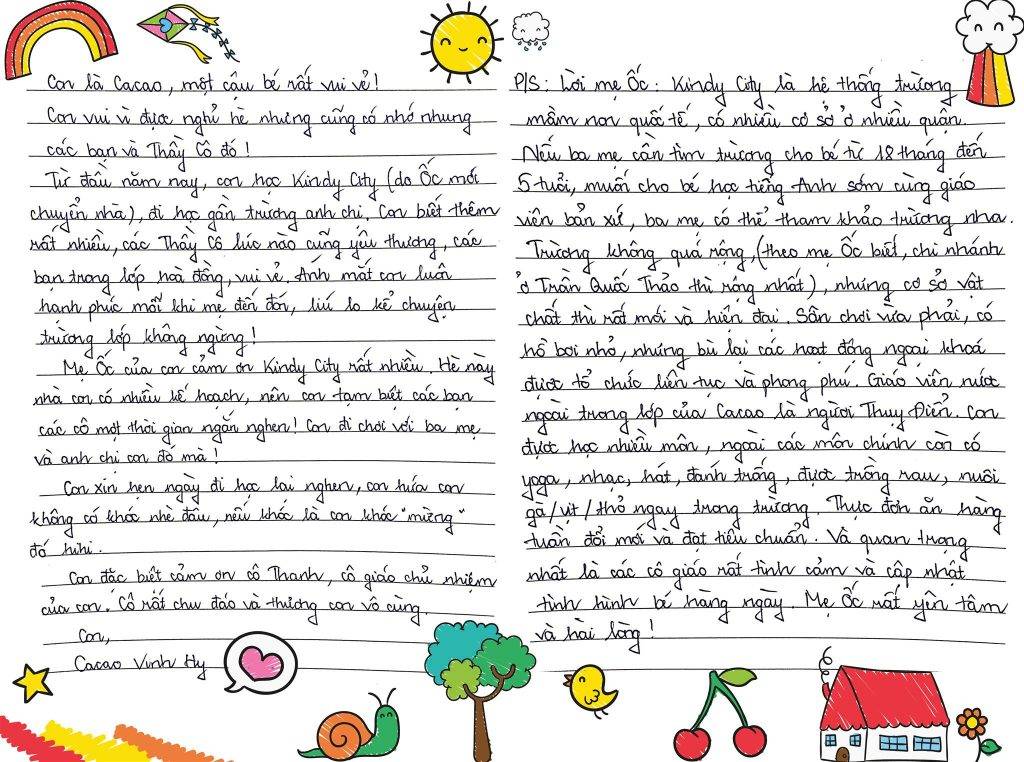 Con là Cacao, một cậu bé rất vui vẻ!
Con vui vì được nghỉ hè nhưng cũng có nhớ nhung
các bạn và Thầy Cô đó!
Từ đầu năm nay, con học Kindy City (do Ốc mới
chuyển nhà), đi học gần trường anh chị. Con biết thêm
rất nhiều, các Thầy Cô lúc nào cũng yêu thương, các
bạn trong lớp hoà đồng, vui vẻ. Ánh mắt con luôn
hạnh phúc mỗi khi mẹ đến đón, líu lo kể chuyện
trường lớp không ngừng!
Mẹ Ốc của con cảm ơn Kindy City rất nhiều. Hè này
nhà con có nhiều kế hoạch, nên con tạm biệt các bạn
các cô một thời gian ngắn nghen! Con đi chơi với ba mẹ
và anh chị con đó mà!
Con xin hẹn ngày đi học lại nghen, con hứa con
không có khóc nhè đâu, nếu khóc là con khóc "mừng"
đó hihi.
Con đặc biệt cảm ơn cô Thanh, cô giáo chủ nhiệm
của con. Cô rất chu đáo và thương con vô cùng.
Con,
Cacao Vinh Hy
P/S: Lời mẹ Ốc: Kindy City là hệ thống trường
mầm non quốc tế, có nhiều cơ sở ở nhiều quận.
Nếu ba mẹ cần tìm trường cho bé từ 18 tháng đến
5 tuổi, muốn cho bé học tiếng Anh sớm cùng giáo
viên bản xứ, ba mẹ có thể tham khảo trường nha.
Trường không quá rộng, (theo mẹ Ốc biết, chi nhánh
ở Trần Quốc Thảo thì rộng nhất), nhưng cơ sở vật
chất thì rất mới và hiện đại. Sân chơi vừa phải, có
hồ bơi nhỏ, nhưng bù lại các hoạt động ngoại khoá
được tổ chức liên tục và phong phú. Giáo viên nước
ngoài trong lớp của Cacao là người Thụy Điển. Con
được học nhiều môn, ngoài các môn chính còn có
yoga, nhạc, hát, đánh trống, được trồng rau, nuôi
gà/vịt/thỏ ngay trong trường. Thực đơn ăn hàng
tuần đổi mới và đạt tiêu chuẩn. Và quan trọng
nhất là các cô giáo rất tình cảm và cập nhật
tình hình bé hàng ngày. Mẹ Ốc rất yên tâm
và hài lòng!